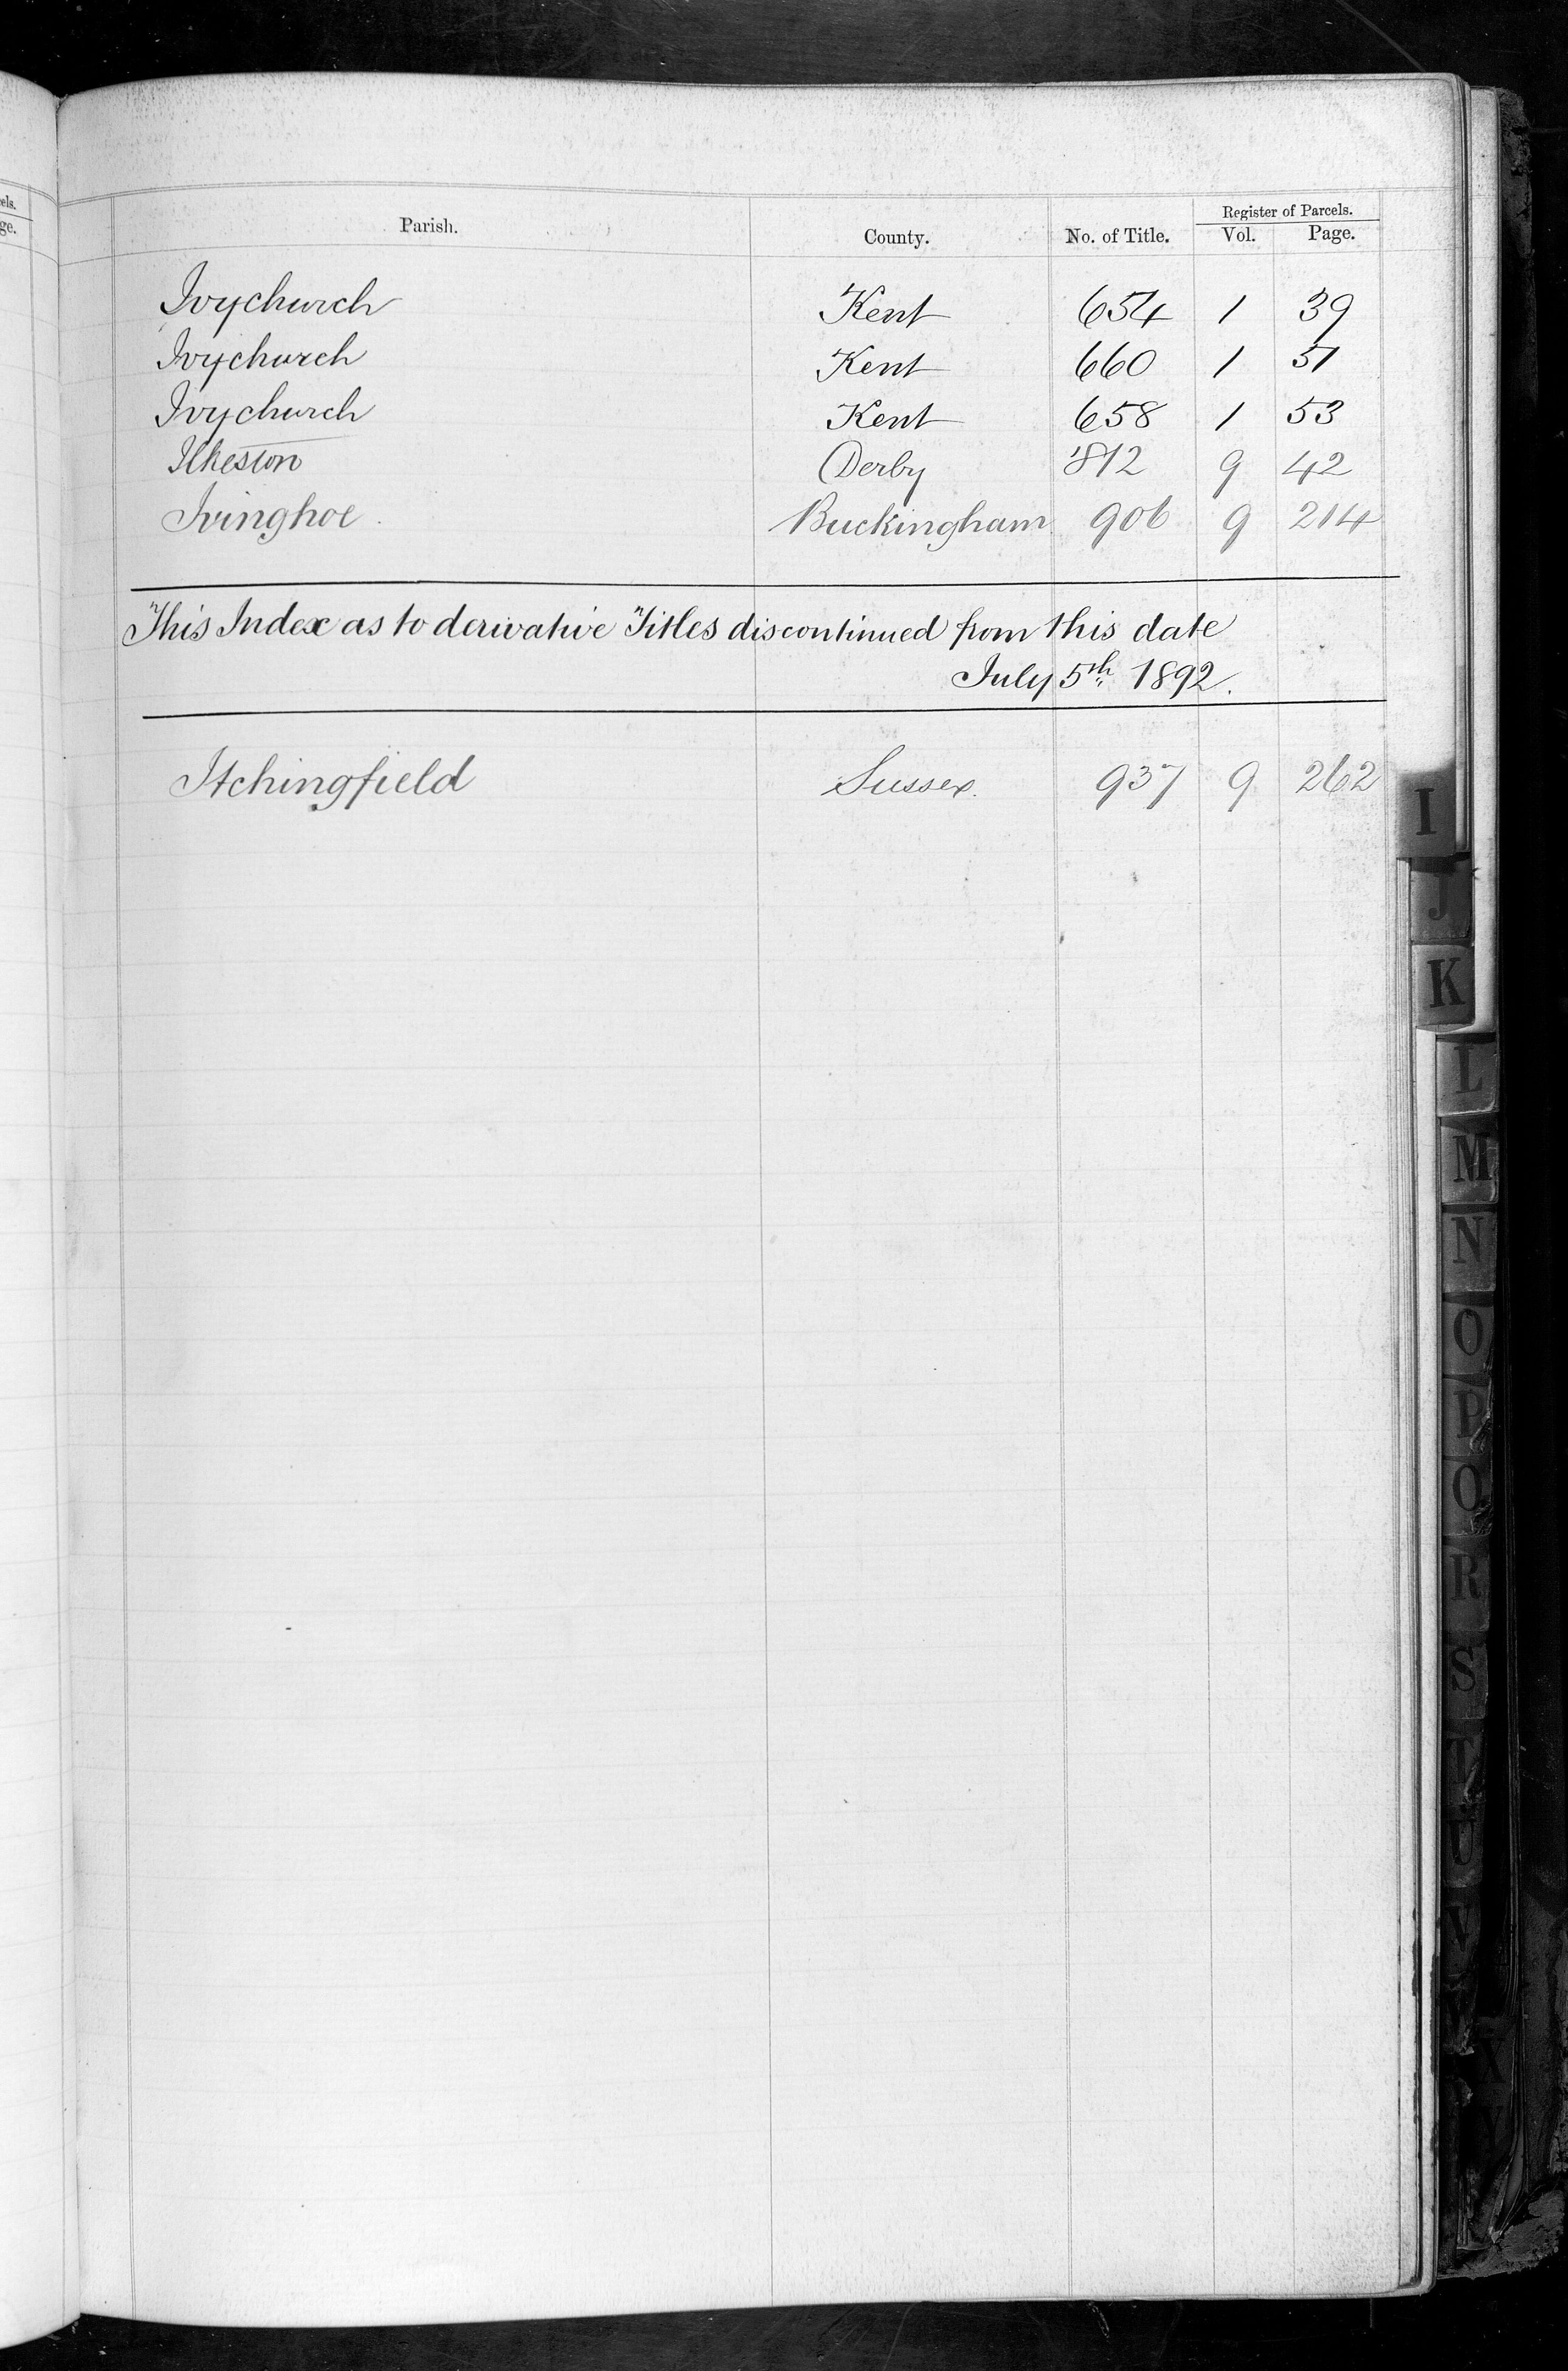 els.
ge.
Parish. County. No. of Title. Register of Parcels. Vol. Page.
Ivychurch Kent 654 1 39
Ivychurch Kent 660 1 51
Ivychurch Kent 658 1 53
Ilkeston Derby 812 9 42
Ivinghoe Buckingham 906 9 214
This Index as to derivative Titles discontinued from this date
July 5th 1892.
Itchingfield Sussex. 937 9 262
I
J
K
L
M
N
O
P
Q
R
S
T
U
V
X
Y